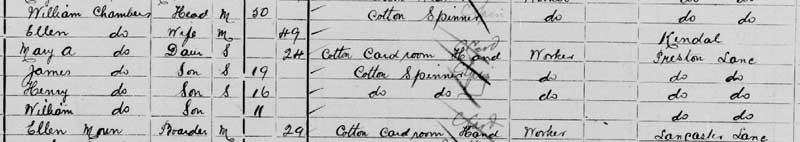 William Chambers Head M 50 Cotton Spinner do do do
Ellen do Wife M 49 Kendal
Mary A do Daur S 24 Cotton Card room Hand Worker Preston Lane
James do Son S 19 Cotton Spinner do do do
Henry do Son S 16 do do do do do
William do Son 11 do do
Ellen Moun Boarder M 29 Cotton Card room Hand Worker Lancaster Lane